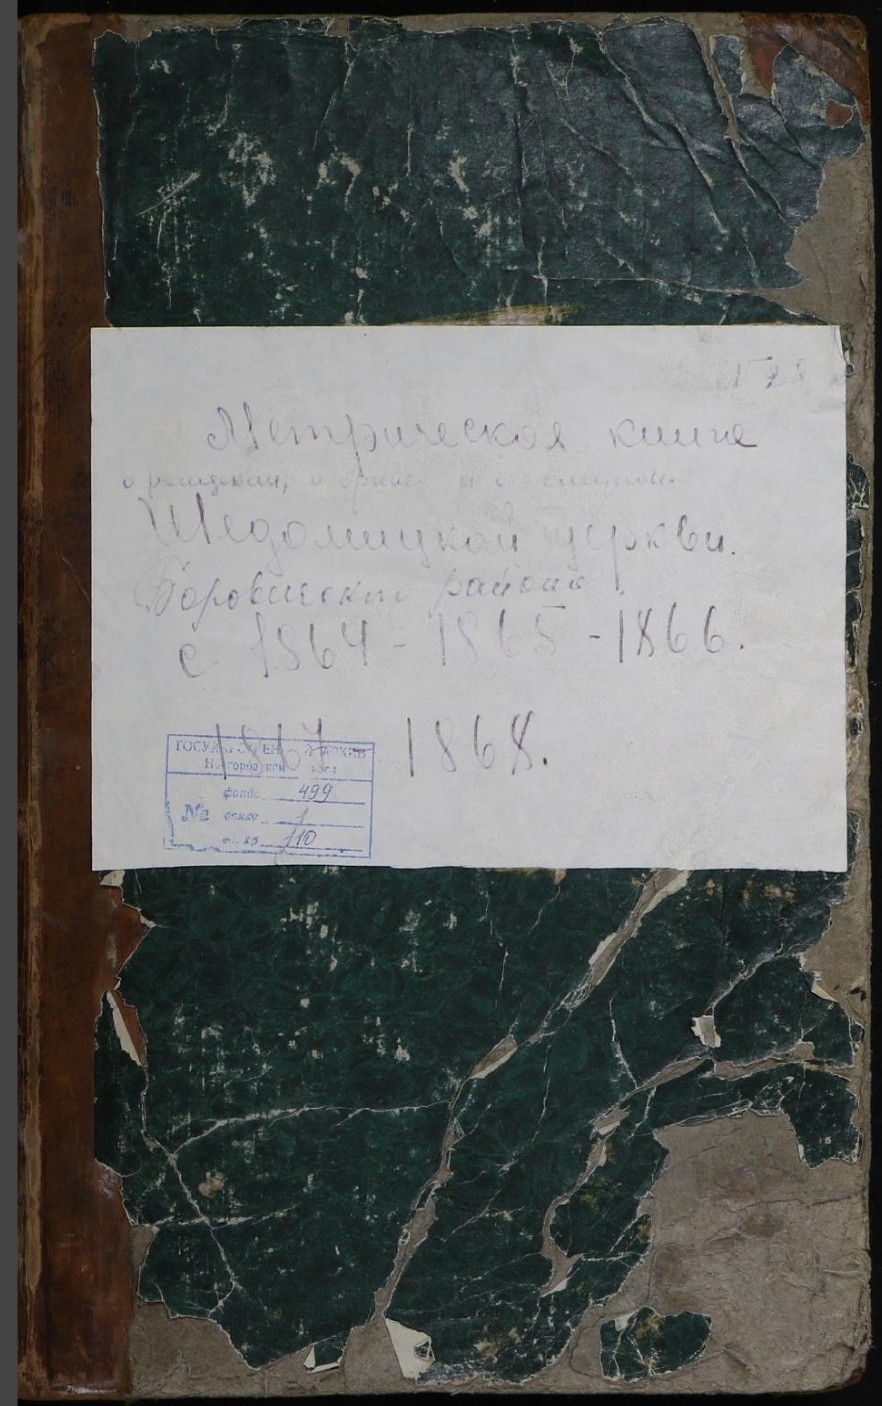 Метрическая книга
о рождении, о браке и о смерти
Шедомицкой церкви.
Боровичского района
с 1864 - 1865 - 1866.
1867 1868.
ГОСУДАРСТВЕН АРХИВ
Новгородской
фонд 499
№ опись 1
ед. хр. 110